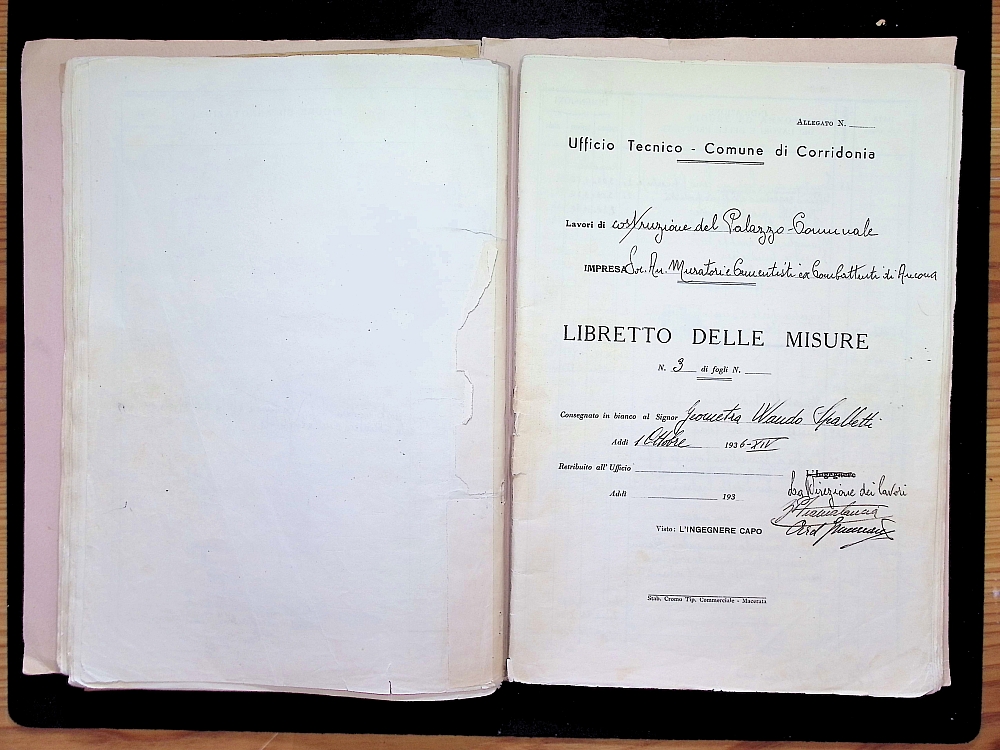 ALLEGATO N.
Ufficio Tecnico - Comune di Corridonia
Lavori di costruzione del Palazzo Comunale
IMPRESA Soc. An. Muratori e Cementisti ex Combattenti di Ancona
LIBRETTO DELLE MISURE
N. 3 di fogli N.
Consegnato in bianco al Signor Geometra Wando Spalletti
Addì 1 Ottobre 1936-XIV
Retribuito all'Ufficio
L'Ingegnere
Addì 193
La Direzione dei lavori
Visto: L'INGEGNERE CAPO
Stab. Cromo Tip. Commerciale - Macerata